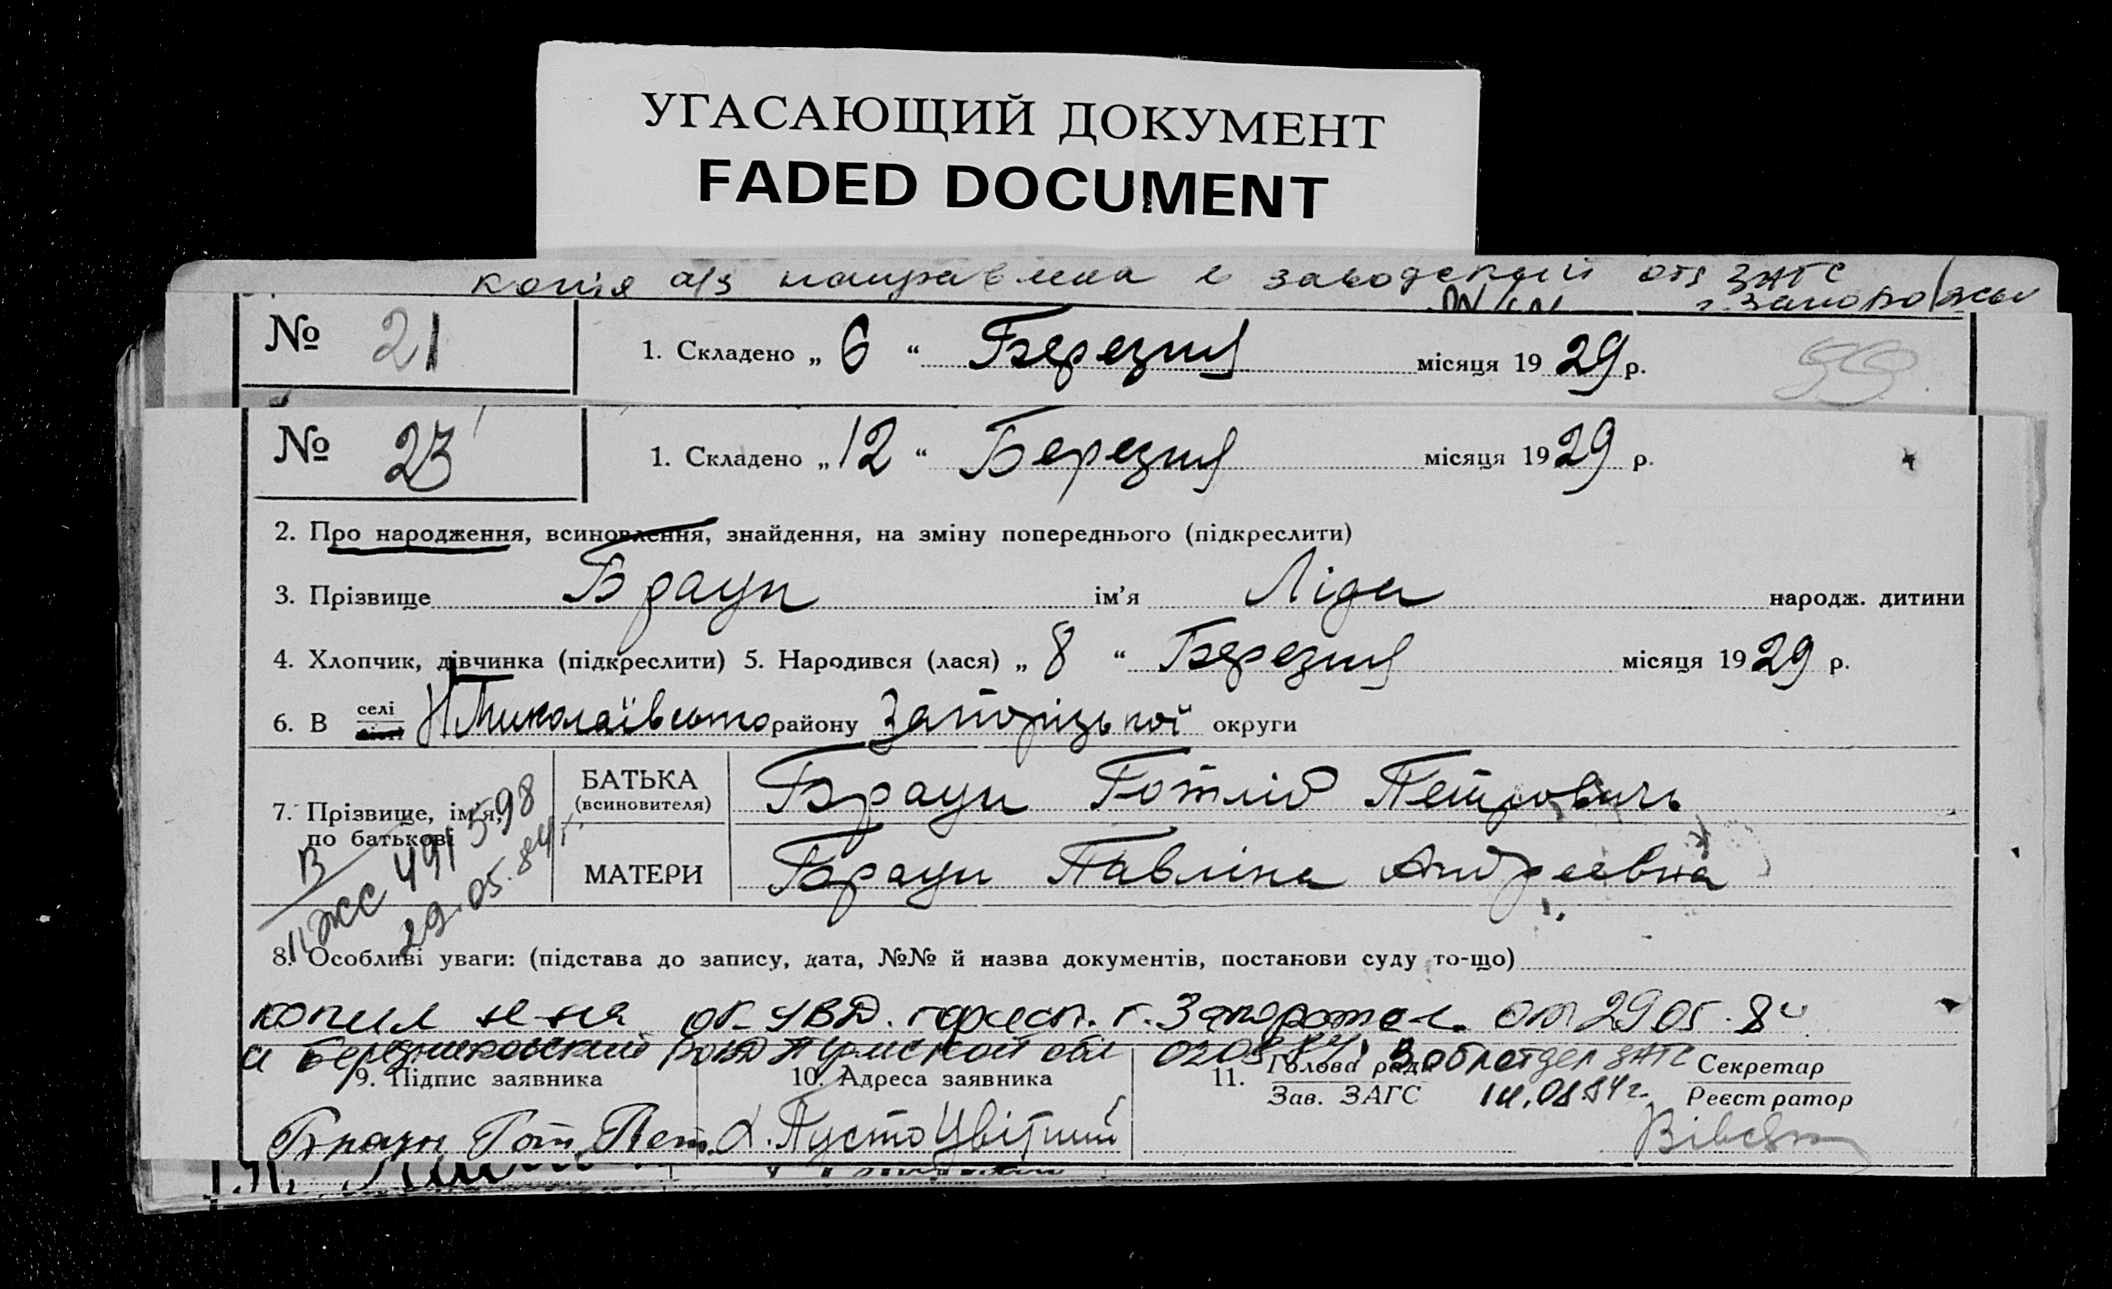 УГАСАЮЩИЙ ДОКУМЕНТ
FADED DOCUMENT
копія а/з направлена в заводский отд ЗАГС
г. Запорожья
№ 21
1. Складено „ 6 “ Березня місяця 1929 р.
99
№ 23
1. Складено „ 12 “ Березня місяця 1929 р.
2. Про народження, всиновлення, знайдення, на зміну попереднього (підкреслити)
3. Прізвище Браун ім’я Ліда народж. дитини
4. Хлопчик, дівчинка (підкреслити) 5. Народився (лася) „ 8 “ Березня місяця 1929 р.
6. В селі Н Миколаївського району Запорізької округи
7. Прізвище, ім’я, по батькові
БАТЬКА (всиновителя) Браун Готліб Петрович
МАТЕРИ Браун Павліна Андреевна
В
II ЖС 491598
29.05.84г.
8. Особливі уваги: (підстава до запису, дата, №№ й назва документів, постанови суду то-що)
УВД г. от 29 05. 84
и Березниковский Пермской обл В облотдел ЗАГС
9. Підпис заявника 10. Адреса заявника 11. Голова ради Секретар
Зав. ЗАГС Реєстратор
Браун Гот Пет. х. Пусто Цвітний